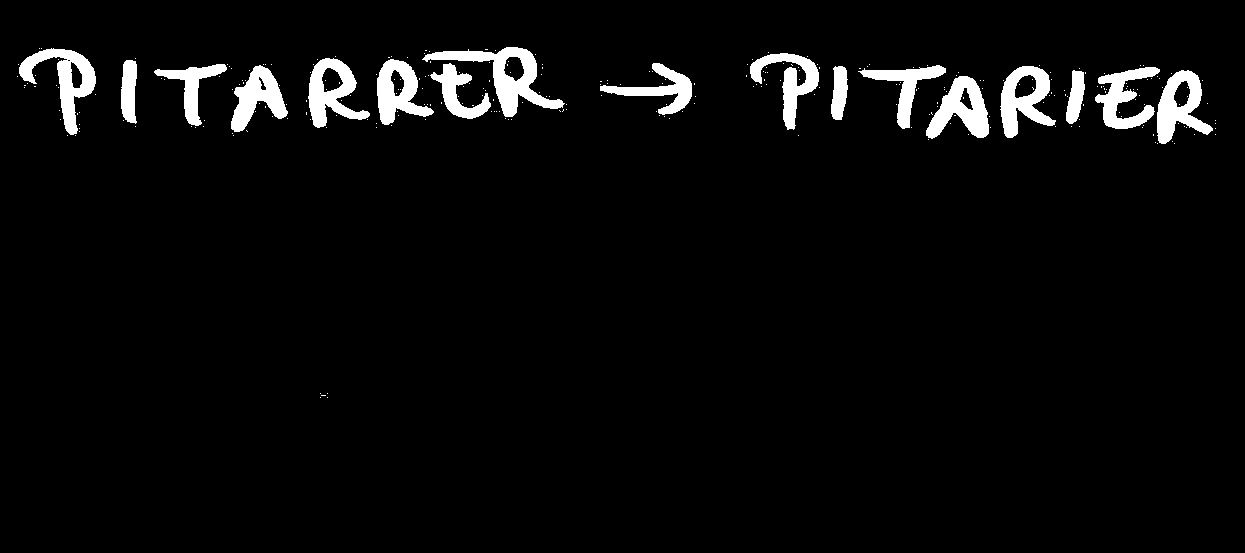 PITARRER → PITARIER